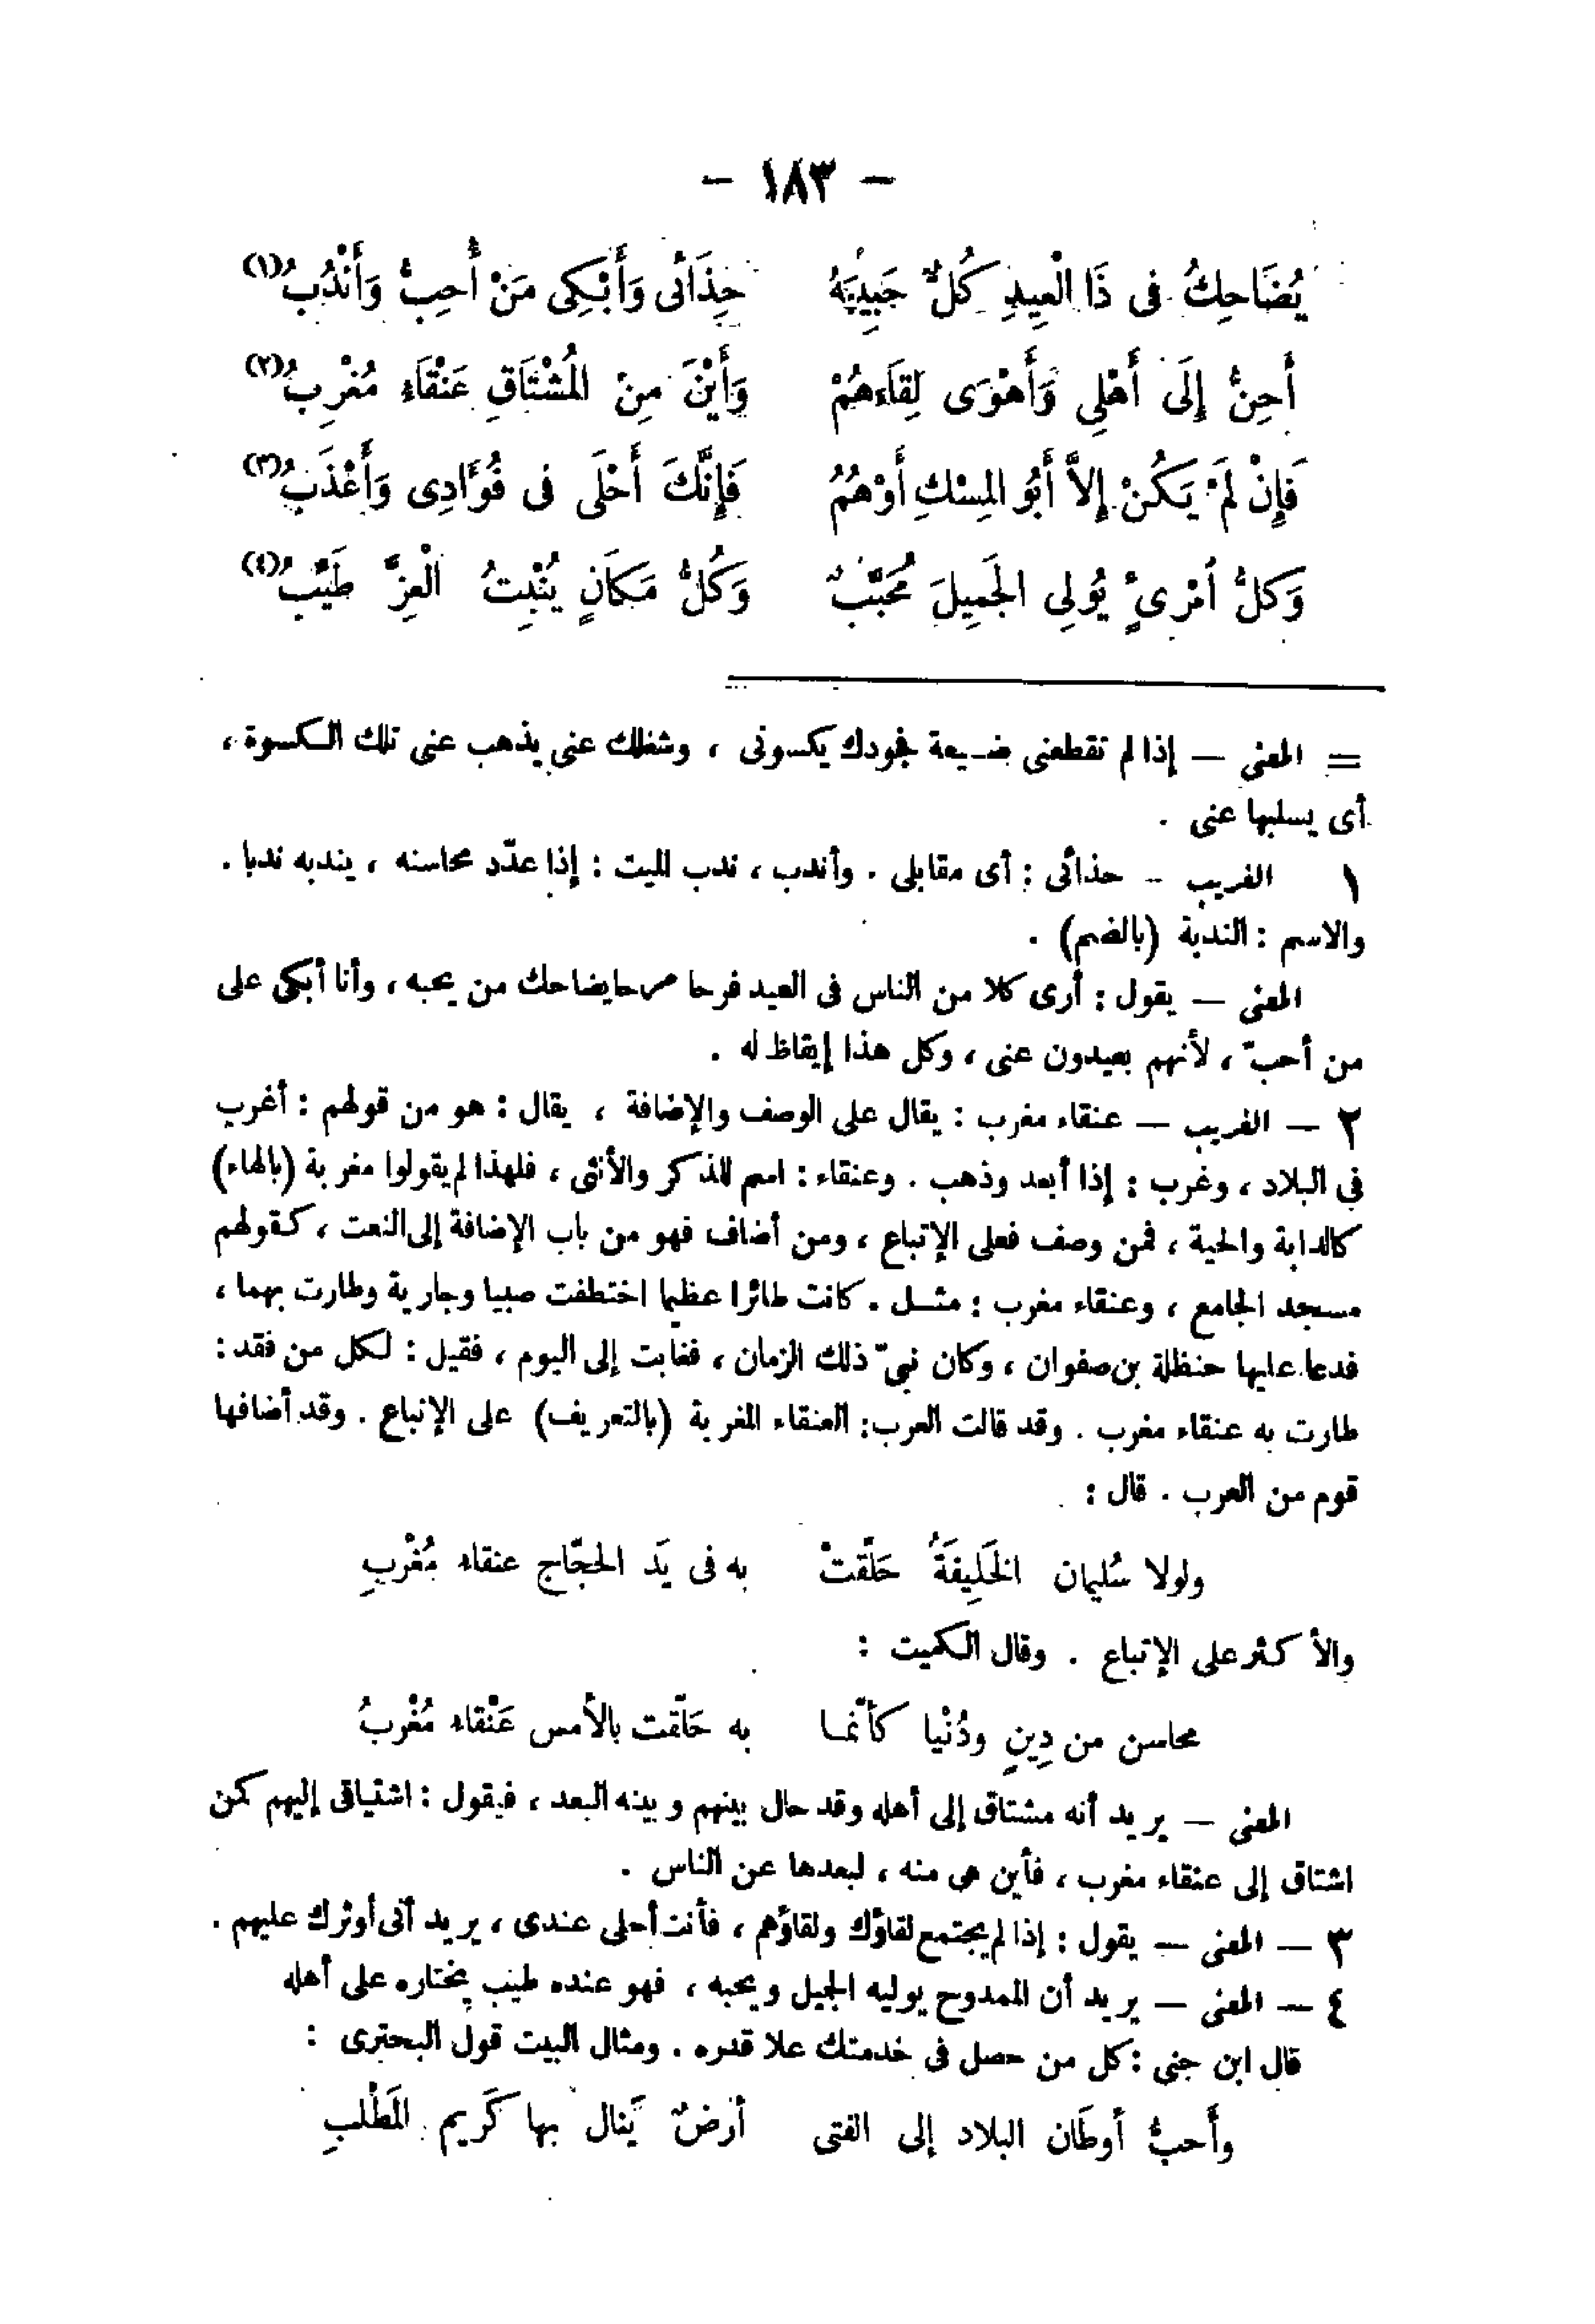 - ١٨٣ -
يُضَاحِكُ فى ذَا الْعِيدِ كُلٌّ حَبِيبَهُ حِذَائى وَأَبْكِى مَنْ أُحِبُّ وَأَنْدُبُ (١)
أَحِنُّ إِلَى أَهْلِى وَأَهْوَى لِقَاءَهُمْ وَأَيْنَ مِنَ الْمُشْتَاقِ عَنْقَاءُ مُغْرِبُ (٢)
فَإِنْ لَمْ يَكُنْ إِلاَّ أَبُو الْمِسْكِ أَوْ هُمُ فَإِنَّكَ أَحْلَى فى فُؤَادِى وَأَعْذَبُ (٣)
وَكلُّ أمْرِىءٍ يُولِى الجَمِيلَ مُحَبَّبٌ وَكُلُّ مَكَانٍ يُنْبِتُ الْعِزَّ طَيِّبُ (٤)
= المعنى — إذا لم تقطعنى ضيعة فجودك يكسونى ، وشغلك عنى يذهب عنى تلك الكسوة ،
أى يسلبها عنى .
١ الغريب - حذائى : أى مقابلى . وأندب ، ندب الميت : إذا عدّد محاسنه ، يندبه ندبا .
والاسم : الندبة (بالضم) .
المعنى — يقول : أرى كلا من الناس فى العيد فرحا مرحا يضاحك من يحبه ، وأنا أبكى على
من أحبّ ، لأنهم بعيدون عنى ، وكل هذا إيقاظ له .
٢ — الغريب — عنقاء مغرب : يقال على الوصف والإضافة ، يقال : هو من قولهم : أغرب
فى البلاد ، وغرب : إذا أبعد وذهب . وعنقاء : اسم للذكر والأنثى ، فلهذا لم يقولوا مغربة (بالهاء)
كالدابة والحية ، فمن وصف فعلى الإتباع ، ومن أضاف فهو من باب الإضافة إلى النعت ، كقولهم
مسجد الجامع ، وعنقاء مغرب : مثل . كانت طائرا عظيما اختطفت صبيا وجارية وطارت بهما ،
فدعا عليها حنظلة بن صفوان ، وكان نبىّ ذلك الزمان ، فغابت إلى اليوم ، فقيل : لكل من فقد :
طارت به عنقاء مغرب . وقد قالت العرب : العنقاء المغربة (بالتعريف) على الإتباع . وقد أضافها
قوم من العرب . قال :
ولولا سُليمان الخَلِيفَةُ حَلَّقتْ به فى يَد الحجّاج عنقاء مُغْربِ
والأكثر على الإتباع . وقال الكميت :
محاسن من دِينٍ ودُنْيا كأنّما به حَلَّقت بالأمس عَنْقاء مُغْربُ
المعنى — يريد أنه مشتاق إلى أهله وقد حال بينهم وبينه البعد ، فيقول : اشتياقى إليهم كمن
اشتاق إلى عنقاء مغرب ، فأين هى منه ، لبعدها عن الناس .
٣ — المعنى — يقول : إذا لم يجتمع لقاؤك ولقاؤهم ، فأنت أحلى عندى ، يريد أنى أوثرك عليهم .
٤ — المعنى — يريد أن الممدوح يوليه الجميل ويحبه ، فهو عنده طيب يختاره على أهله
قال ابن جنى : كل من حصل فى خدمتك علا قدره . ومثال البيت قول البحترى :
وأَحبُّ أوطَان البلاد إلى الفتى أرضٌ يَنال بها كَريم المَطْلبِ